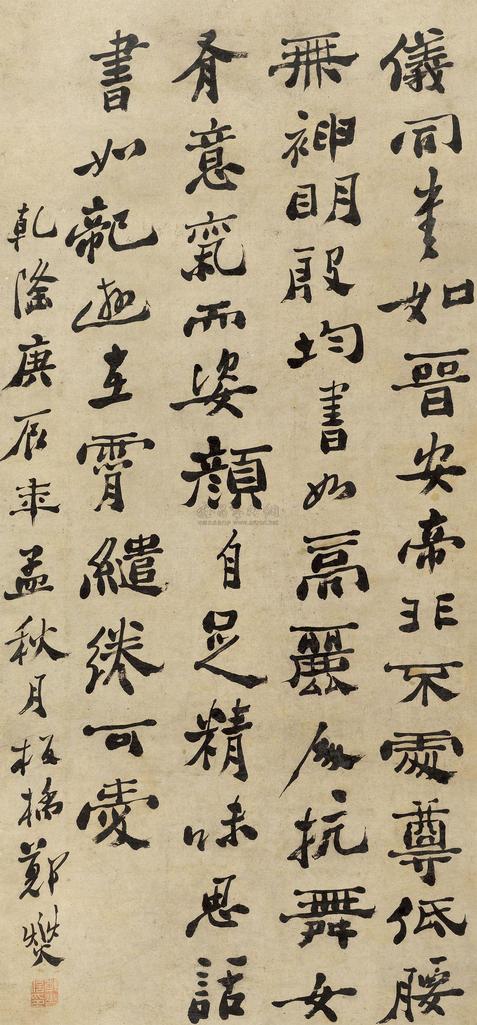 儀同書如晉安帝非不處尊低腰
無神明殷均書如高麗抗舞女
有意氣而姿顏自足精味思話
書如龍遊在霄繾綣可愛
乾隆庚辰年孟秋月板橋鄭燮